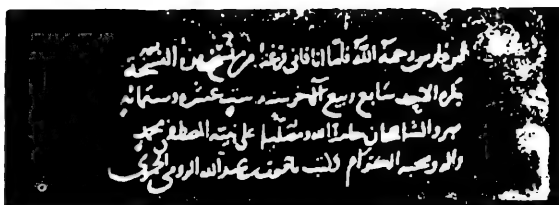 فارس رحمة الله فأما انا فاني فرغت من نسخ هذه النسخة
بكرة الاحد سابع ربيع الآخر سنة ست عشرة وستمائة
بمرو الشاهجان حامدا لله ومصليا على نبيه المصطفى محمد
واله وصحبه الكرام كتب ياقوت بن عبد الله الرومي الحموي